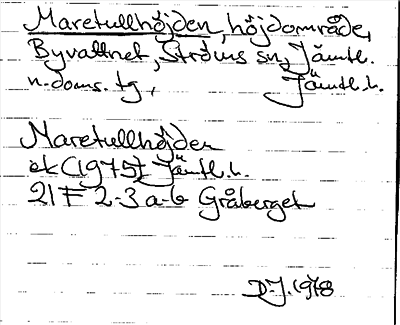 Maretullhöjden, höjdområde,
Byvattnet, Ströms sn, Jämtl.
n. doms. tg, Jämtl. l.
Maretullhöjden
ek (1975) Jämtl. l.
21F 2-3 a-b Gråberget
D-J. 1978